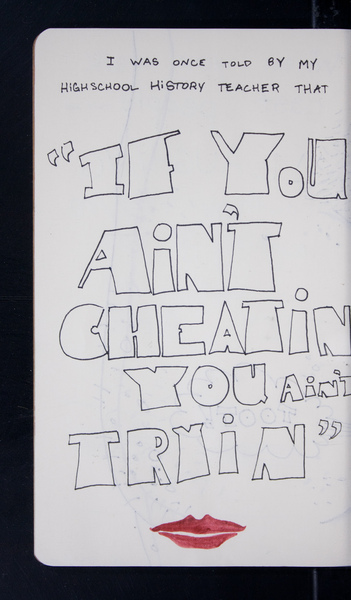 I WAS ONCE TOLD BY MY
HIGHSCHOOL HISTORY TEACHER THAT
"IF YOU
AiN'T
CHEATiN
YOU AiN'T
TRYiN"